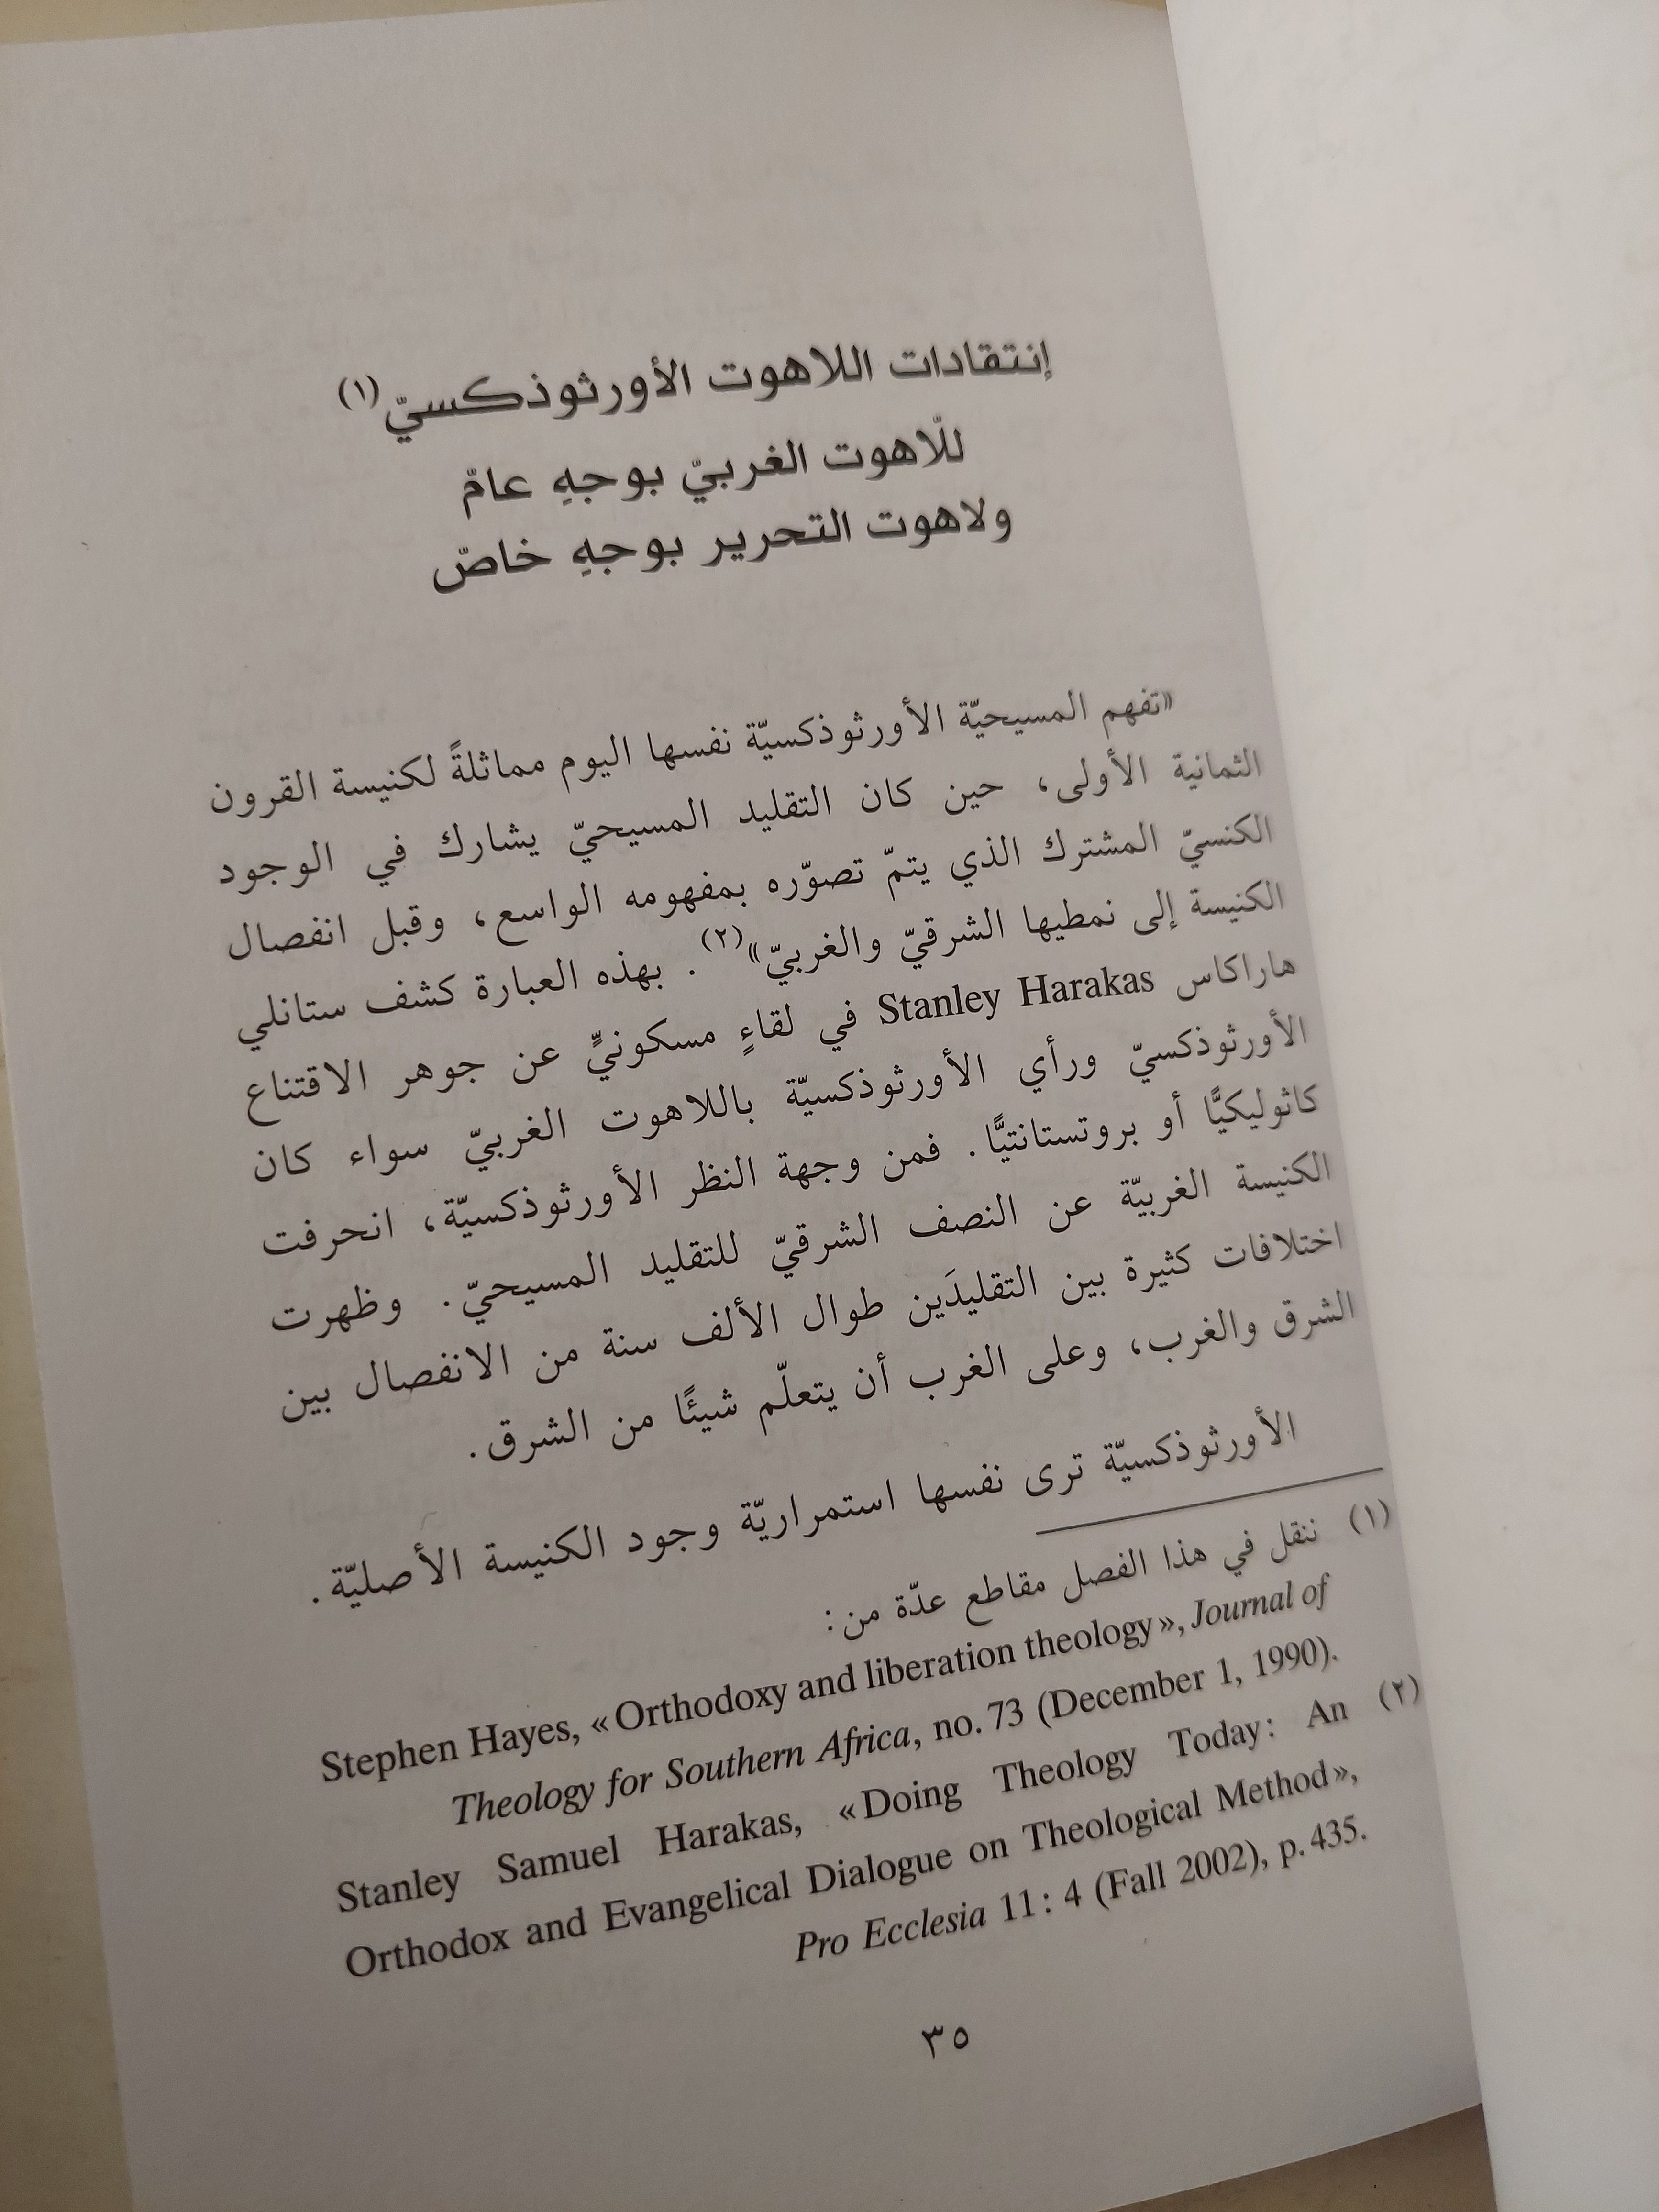 إنتقادات اللاهوت الأورثوذكسيّ(١)
للّاهوت الغربيّ بوجهٍ عامّ
ولاهوت التحرير بوجهٍ خاصّ
«تفهم المسيحيّة الأورثوذكسيّة نفسها اليوم مماثلةً لكنيسة القرون
الثمانية الأولى، حين كان التقليد المسيحيّ يشارك في الوجود
الكنسيّ المشترك الذي يتمّ تصوّره بمفهومه الواسع، وقبل انفصال
الكنيسة إلى نمطيها الشرقيّ والغربيّ»(٢). بهذه العبارة كشف ستانلي
هاراكاس Stanley Harakas في لقاءٍ مسكونيٍّ عن جوهر الاقتناع
الأورثوذكسيّ ورأي الأورثوذكسيّة باللاهوت الغربيّ سواء كان
كاثوليكيًّا أو بروتستانتيًّا. فمن وجهة النظر الأورثوذكسيّة، انحرفت
الكنيسة الغربيّة عن النصف الشرقيّ للتقليد المسيحيّ. وظهرت
اختلافات كثيرة بين التقليدَين طوال الألف سنة من الانفصال بين
الشرق والغرب، وعلى الغرب أن يتعلّم شيئًا من الشرق.
الأورثوذكسيّة ترى نفسها استمراريّة وجود الكنيسة الأصليّة.
(١) ننقل في هذا الفصل مقاطع عدّة من:
Stephen Hayes, «Orthodoxy and liberation theology», Journal of
Theology for Southern Africa, no. 73 (December 1, 1990).
(٢) Stanley Samuel Harakas, «Doing Theology Today: An
Orthodox and Evangelical Dialogue on Theological Method»,
Pro Ecclesia 11: 4 (Fall 2002), p. 435.
٣٥